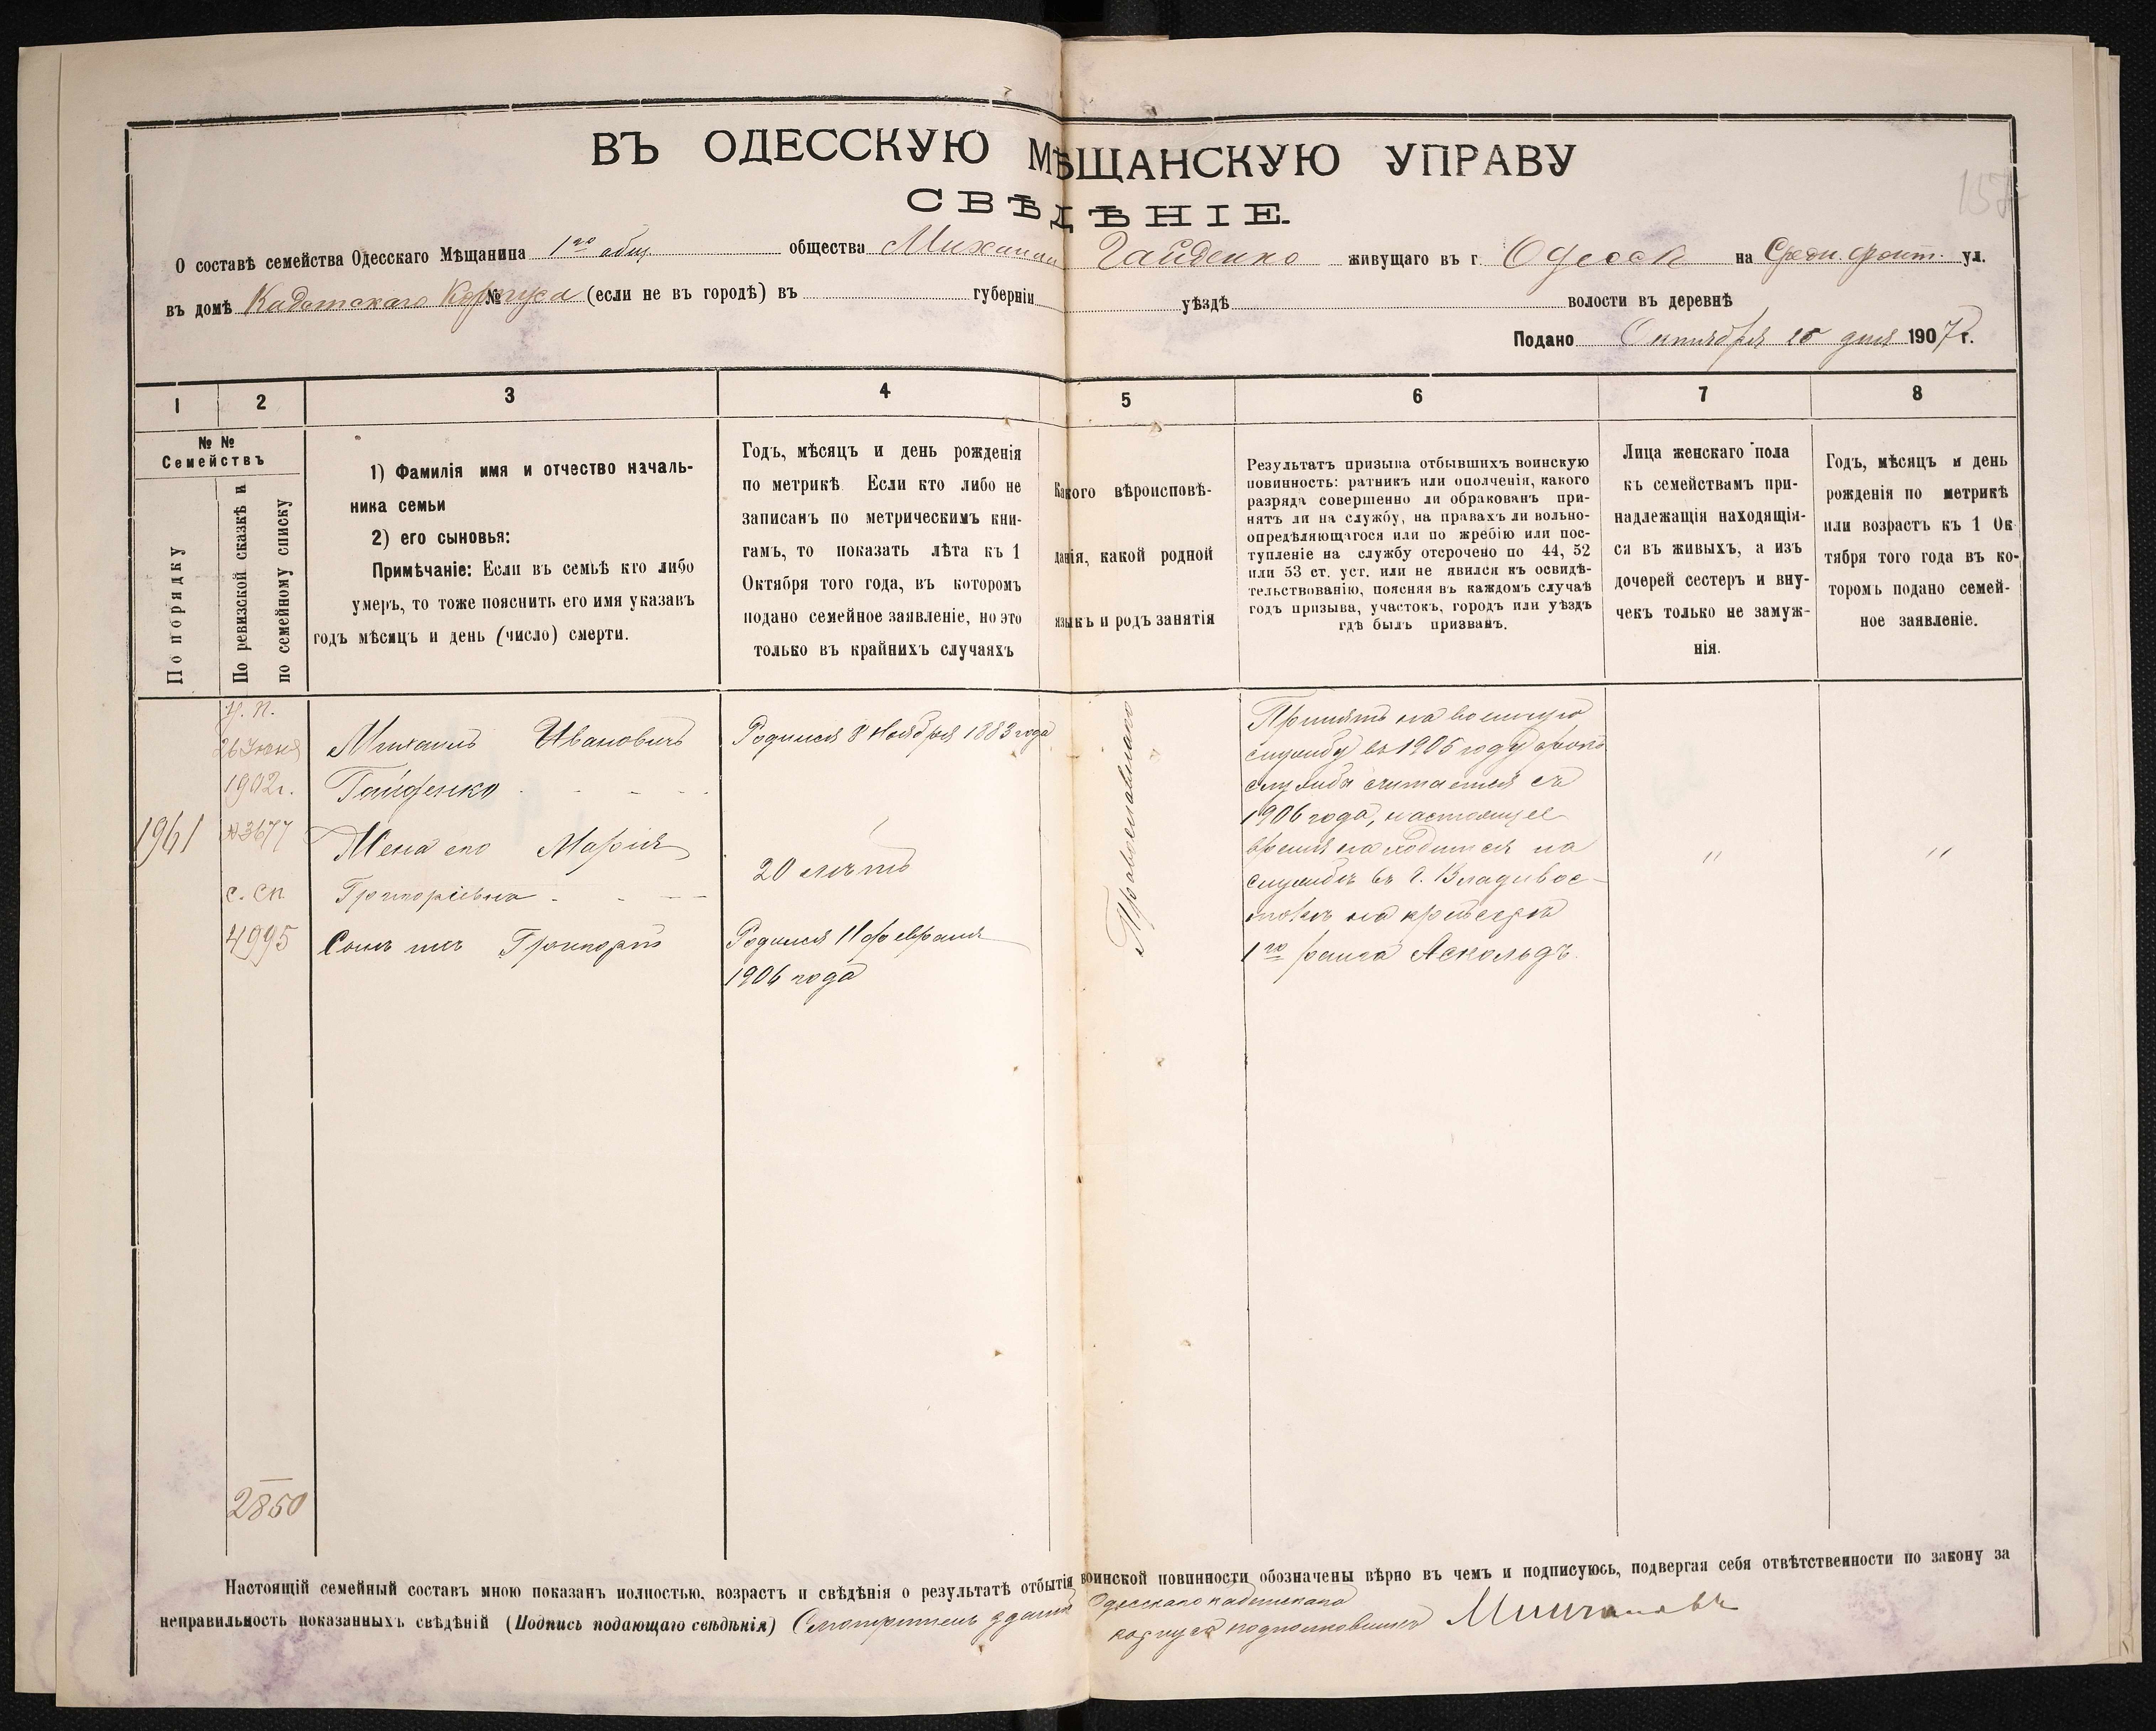 ВЪ ОДЕССКУЮ МѢЩАНСКУЮ УПРАВУ
СВѢДѢНІЕ.
157
О составѣ семейства Одесскаго Мѣщанина 1го общ. общества Михаила Гайденко живущаго въ г. Одессѣ на Средн. фонт. ул.
въ домѣ Кадетскаго Корпуса № (если не въ городѣ) въ губерніи уѣздѣ волости въ деревнѣ
Подано Октября 15 дня 1907 г.
1 2 3 4 5 6 7 8
№ №
Семействъ
По порядку
По ревизской сказкѣ и
по семейному списку
1) Фамилія имя и отчество началь-
ника семьи
2) его сыновья:
Примѣчаніе: Если въ семьѣ кто либо
умеръ, то тоже пояснить его имя указавъ
годъ мѣсяцъ и день (число) смерти.
Годъ, мѣсяцъ и день рожденія
по метрикѣ Если кто либо не
записанъ по метрическимъ кни-
гамъ, то показать лѣта къ 1
Октября того года, въ которомъ
подано семейное заявленіе, но это
только въ крайнихъ случаяхъ
Какого вѣроисповѣ-
данія, какой родной
языкъ и родъ занятія
Результатъ призыва отбывшихъ воинскую
повинность: ратникъ или ополченія, какого
разряда совершенно ли обракованъ при-
нятъ ли на службу, на правахъ ли вольно-
опредѣляющагося или по жребію или пос-
тупленіе на службу отсрочено по 44, 52
или 53 ст. уст. или не явился къ освидѣ-
тельствованію, поясняя въ каждомъ случаѣ
годъ призыва, участокъ, городъ или уѣздъ
гдѣ былъ призванъ.
Лица женскаго пола
къ семействамъ при-
надлежащія находящія-
ся въ живыхъ, а изъ
дочерей сестеръ и вну-
чекъ только не замуж-
нія.
Годъ, мѣсяцъ и день
рожденія по метрикѣ
или возрастъ къ 1 Ок
тября того года въ ко-
торомъ подано семей-
ное заявленіе.
1961
26 Іюня
1902г.
№3677
с. сп
4995
2850
Михаилъ Ивановичъ
Гайденко
Жена его Марія
Григоріевна
Сынъ ихъ Григорій
Родился 8 Ноября 1883 года
20 лѣтъ
Родился 11 февраля
1906 года
Православнаго
Принятъ на военную
службу въ 1905 году срокъ
службы считается съ
1906 года, настоящее
время находится на
службѣ въ г. Владивос-
токѣ на крейсерѣ
1го ранга Аскольдъ.
" "
Настоящій семейный составъ мною показанъ полностью, возрастъ и свѣдѣнія о результатѣ отбытія воинской повинности обозначены вѣрно въ чемъ и подписуюсь, подвергая себя отвѣтственности по закону за
неправильность показанныхъ свѣдѣній (Подпись подающаго свѣдѣнія) Смотритель зданій Одесскаго кадетскаго
корпуса подполковникъ